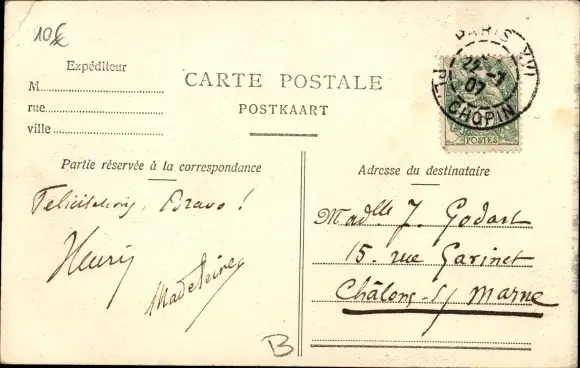 10f
Expéditeur
M
rue
ville
CARTE POSTALE
POSTKAART
PARIS XVI
PL. CHOPIN
07
POSTES
Partie réservée à la correspondance
Adresse du destinataire
Felicitations, Bravo !
Henri
Madeleine
Madlle J. Godart
15. rue Garinet
Châlons-s/ Marne
B